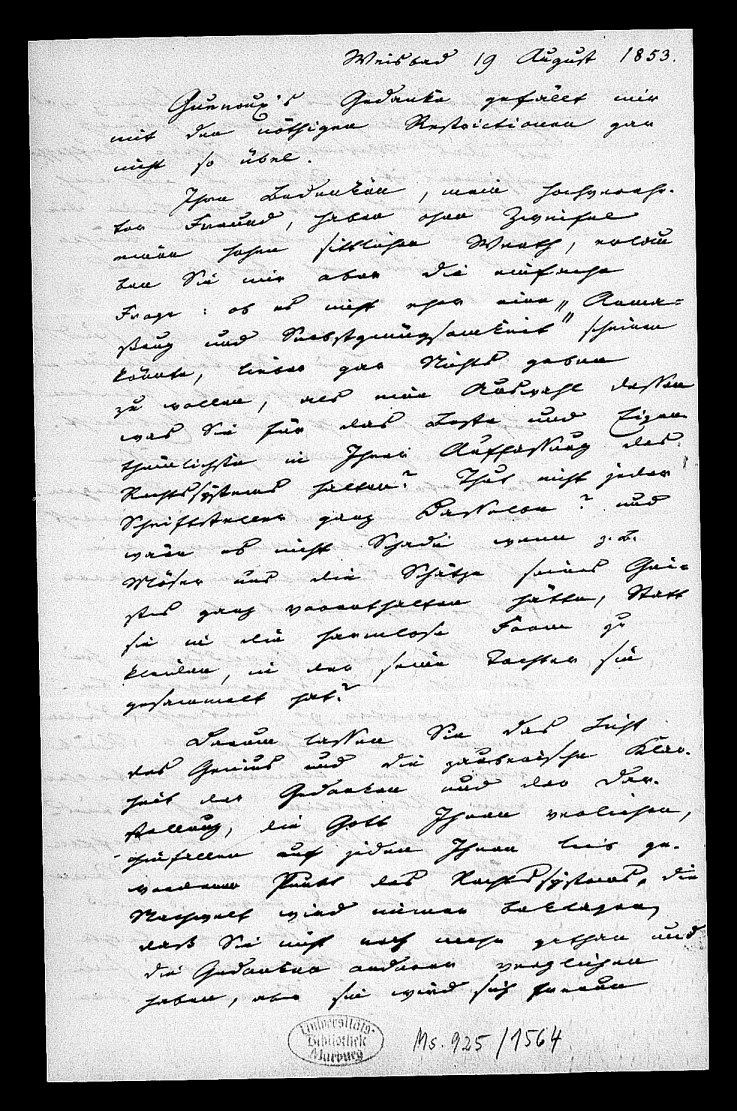 Weisbad 19 August 1853.
Guenoux's Gedanke gefällt mir
mit den nöthigen Restrictionen gar
nicht so übel.
Ihre Bedenken, mein hochverehr-
ter Freund, haben ohne Zweifel
einen hohen sittlichen Werth, erlau
ben Sie mir aber die einfache
Frage: ob es nicht eher eine "Anma-
ßung und Selbstgenügsamkeit" scheinen
könnte, lieber gar Nichts geben
zu wollen, als eine Auswahl dessen
was Sie für das Beste und Eigen
thümlichste in Ihrer Auffassung des
Rechtssystems halten? Thut nicht jeder
Schriftsteller ganz Dasselbe? und
wäre es nicht Schade wenn z.B.
Möser uns die Schätze seines Gei-
stes ganz vorenthalten hätte, statt
sie in die harmlose Form zu
kleiden, in der seine Tochter sie
gesammelt hat?
Darum lassen Sie das Licht
des Genius und die Klar-
heit der Gedanken und der Dar-
stellung, die Gott Ihnen verliehen,
hinfallen auf jeden Ihnen lieb ge-
wordenen Punkt des Rechtssystems, die
Nachwelt wird immer beklagen,
daß Sie nicht noch mehr gethan und
die Gedanken anderer verglichen
haben, aber sie wird sich freuen
Universitäts-
Bibliothek
Marburg
Ms. 925/1564